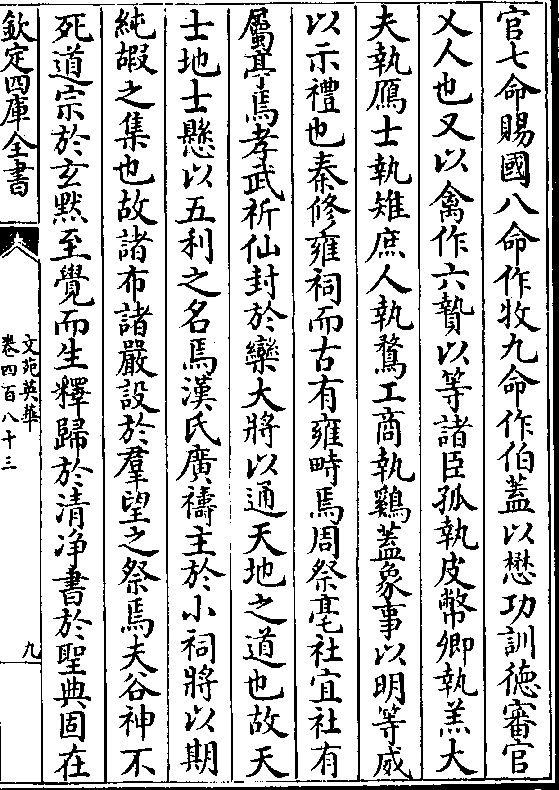 官七命賜國八命作牧九命作伯蓋以懋功訓徳審官
乂人也又以禽作六贄以等諸臣孤執皮幣卿執羔大
夫執鴈士執雉庶人執鶩工商執鷄蓋象事以明等威
以示禮也秦修雍祠而古有雍畤焉周祭亳社宜社有
屬亭焉孝武祈仙封於欒大將以通天地之道也故天
士地士懸以五利之名焉漢氏廣禱主於小祠將以期
純嘏之集也故諸布諸嚴設於羣望之祭焉夫谷神不
死道宗於玄黙至覺而生釋歸於清净書於聖典固在
欽定四庫全書
文苑英華
卷四百八十三
九